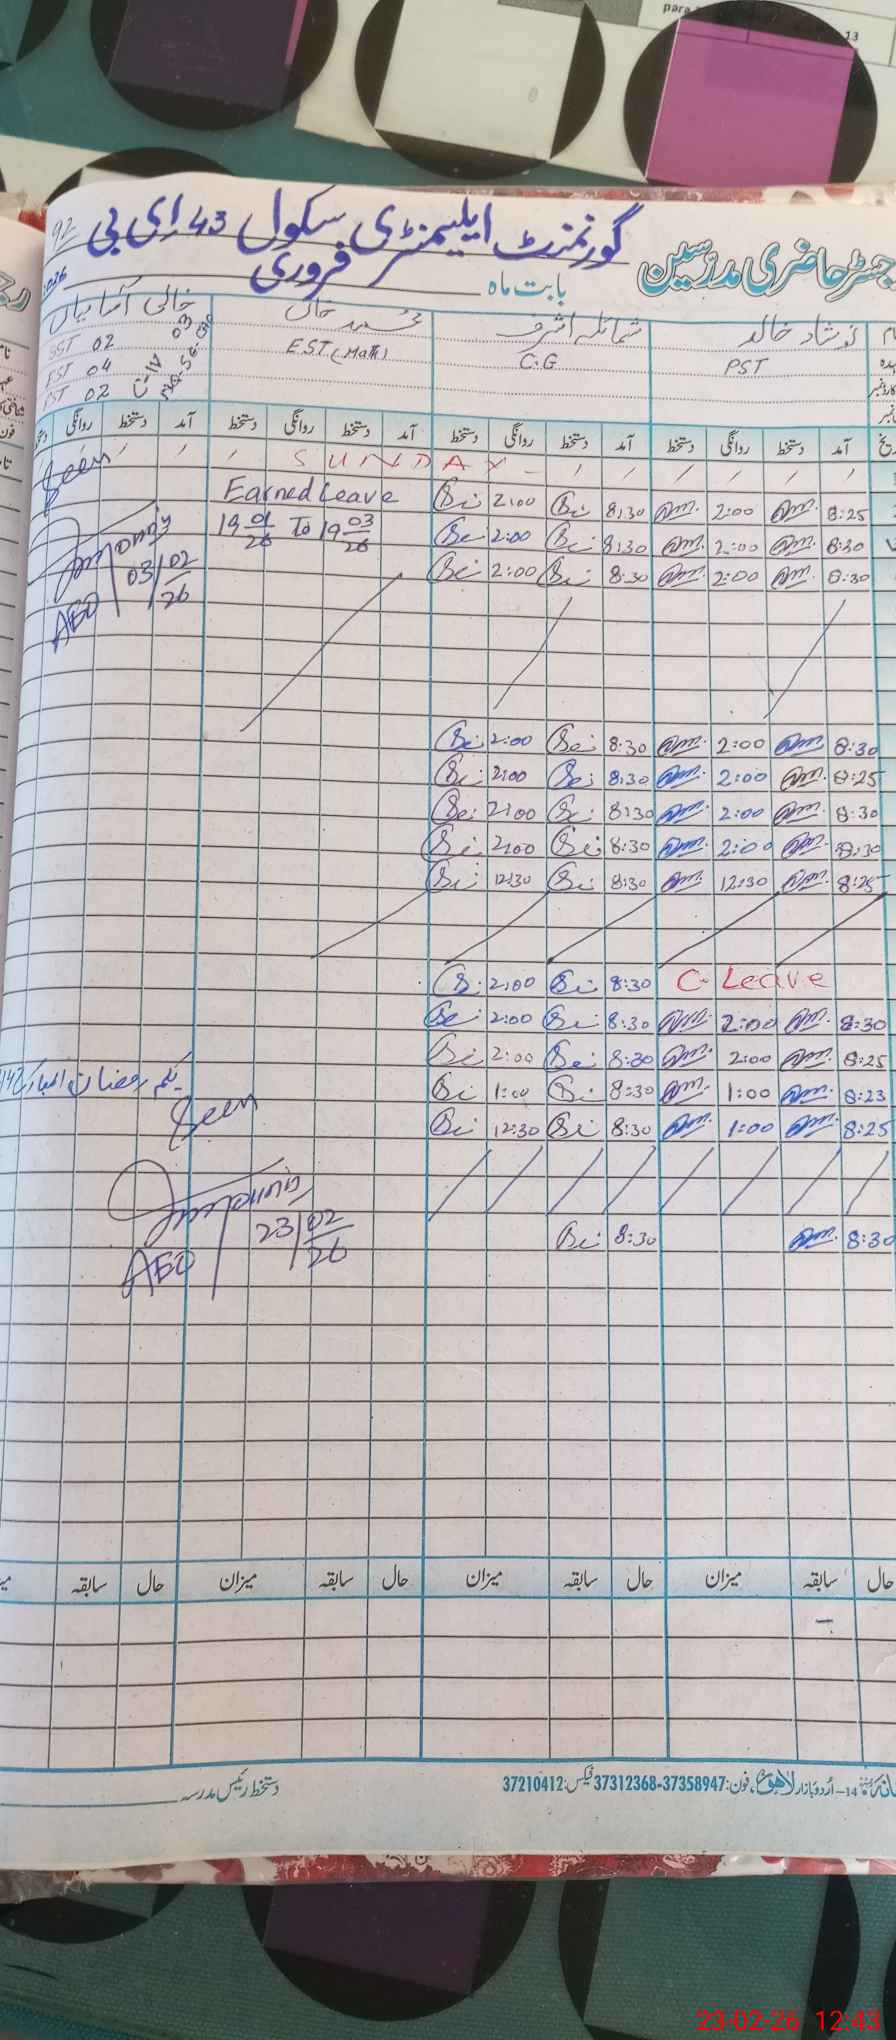 para
13
92
گورنمنٹ ایلیمنٹری سکول 43 ای بی
رجسٹر حاضری مدرسین
بابت ماہ فروری 2026
نوشاد خالد
PST
شمائلہ اشرف
C.G
خان
EST (Math)
خالی آسامیاں
SST 02 03
EST 04
PST 02 C-IV
آمد دستخط روانگی دستخط آمد دستخط روانگی دستخط آمد دستخط روانگی دستخط آمد دستخط روانگی
SUNDAY
Seen
8:25 2:00 8:30 2:00 Earned Leave
8:30 2:00 8:30 2:00 19 01/26 To 19 03/26
8:30 2:00 8:30 2:00
AEO 03/02/26
8:30 2:00 8:30 2:00
8:25 2:00 8:30 2:00
8:30 2:00 8:30 2:00
8:30 2:00 8:30 2:00
8:25 12:30 8:30 12:30
C. Leave 8:30 2:00
8:30 2:00 8:30 2:00
8:25 2:00 8:30 2:00
8:23 1:00 8:30 1:00 یکم رمضان المبارک
8:25 1:00 8:30 12:30
Seen
8:30 8:30
AEO 23/02/26
حال سابقہ میزان حال سابقہ میزان حال سابقہ میزان حال سابقہ
14-اُردو بازار لاہور، فون: 37358947-37312368 فیکس: 37210412
دستخط رئیس مدرسہ
23-02-26 12:43